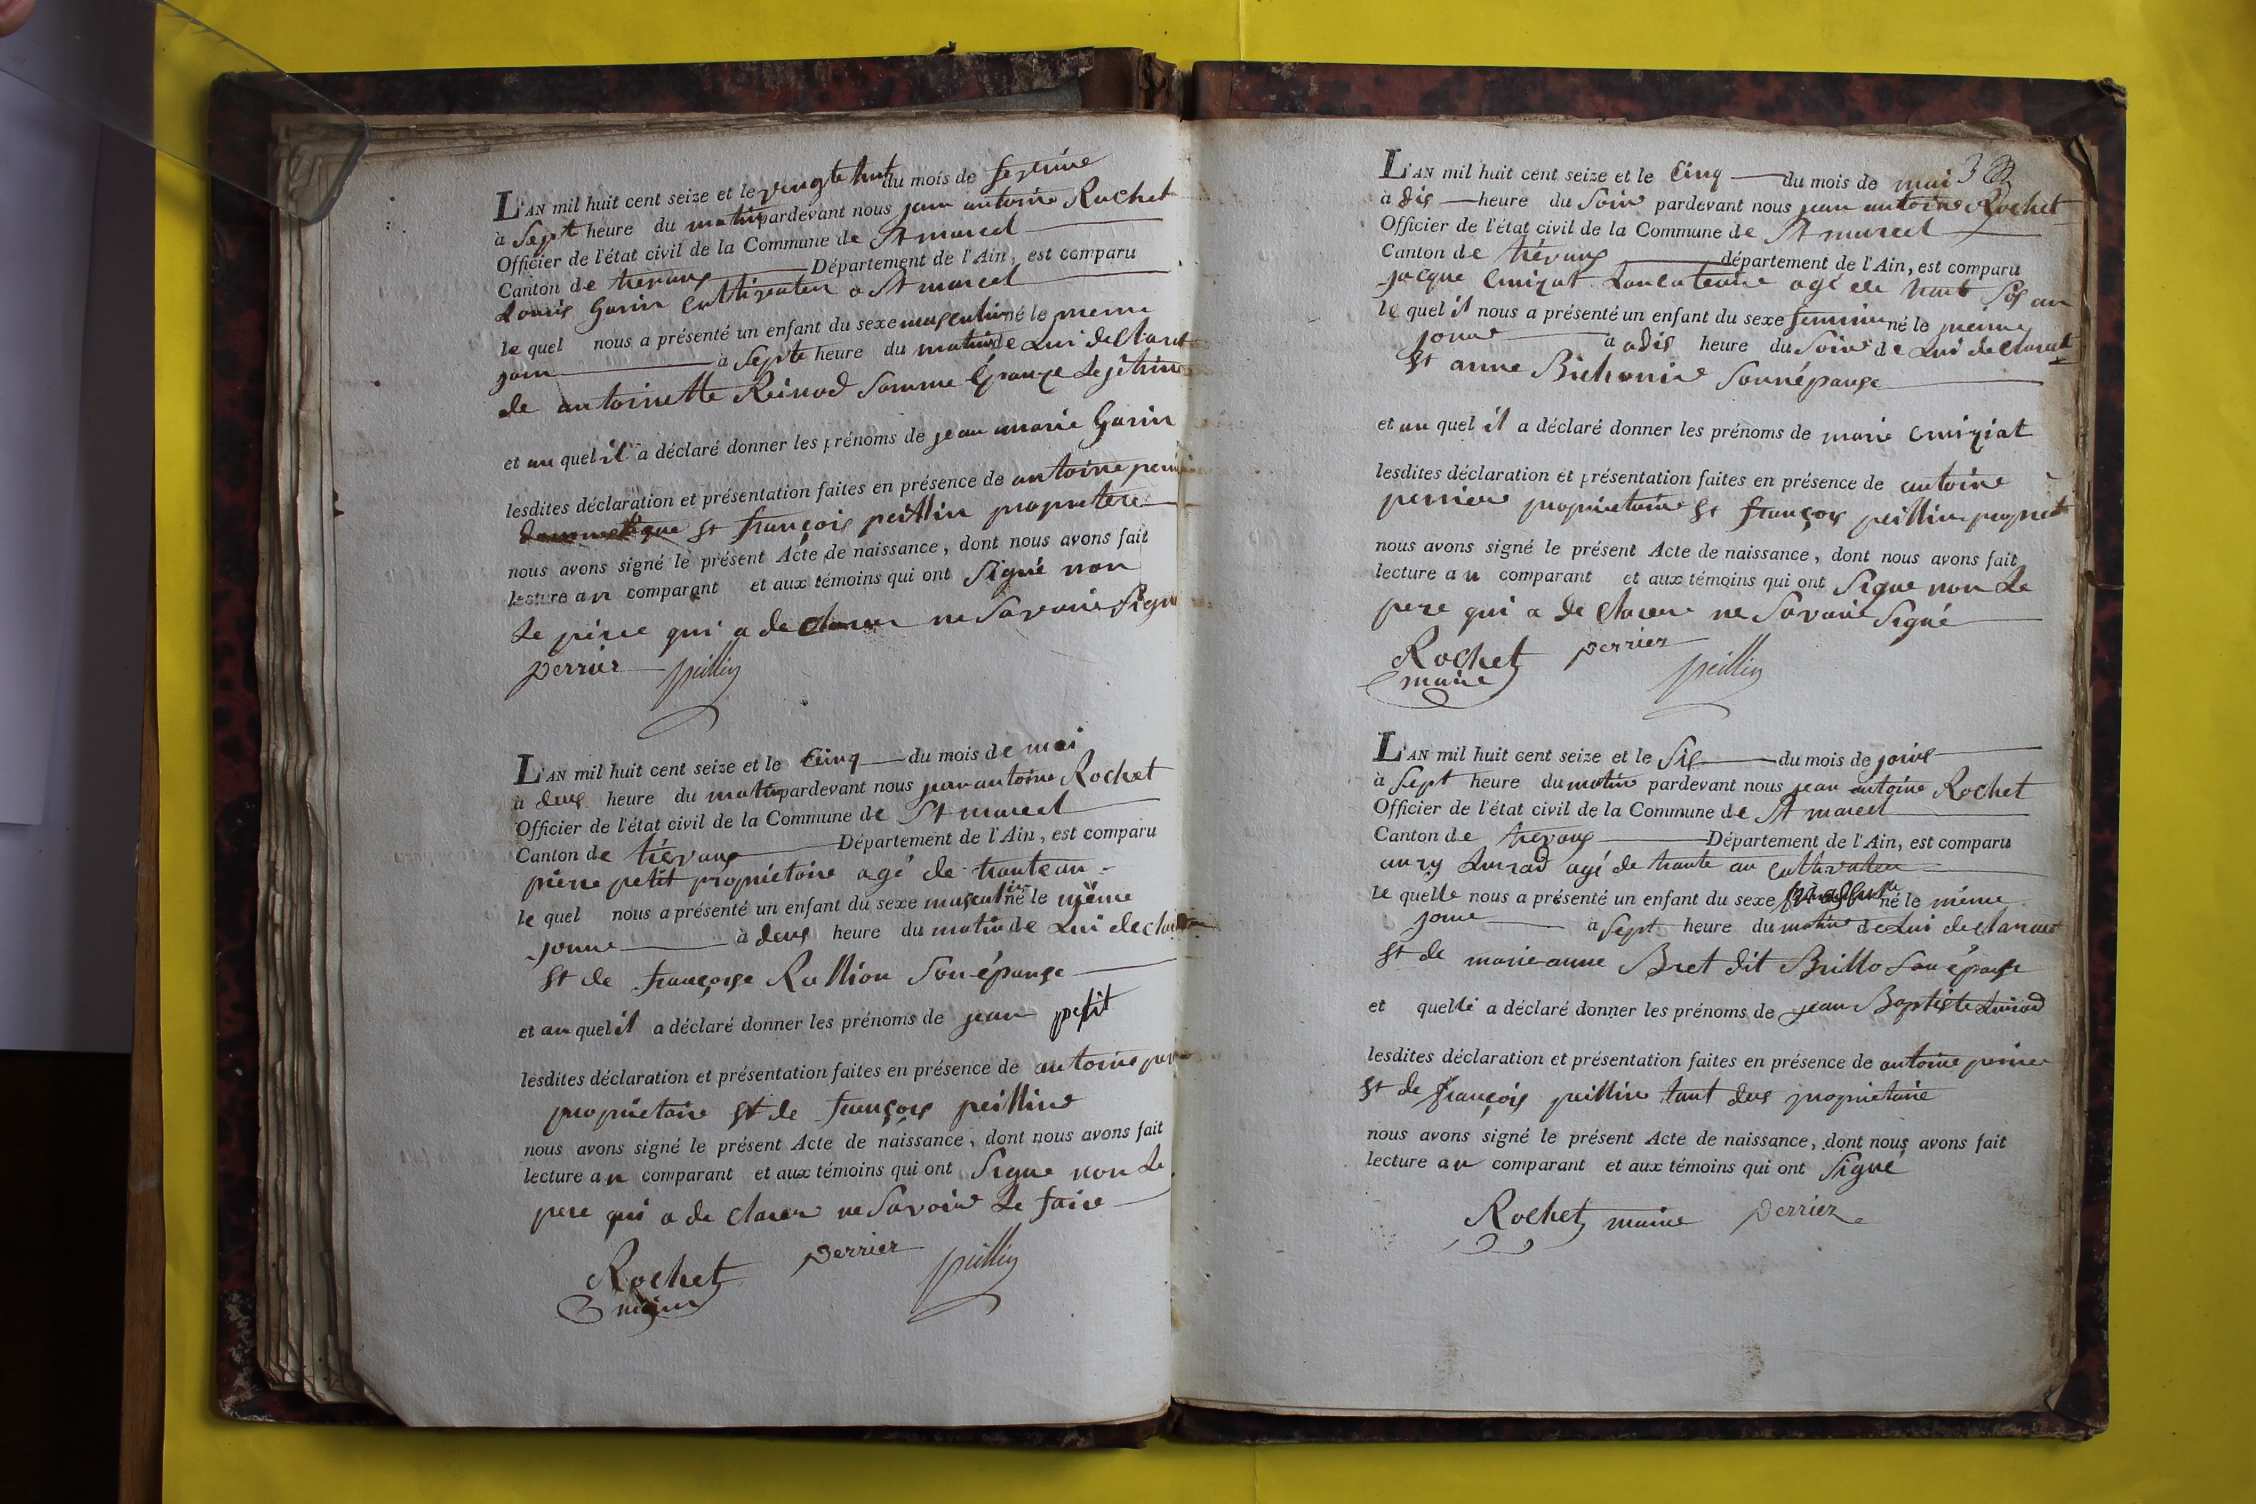 L'AN mil huit cent seize et le vingte huit du mois de fevrive
à Sept heure du matin pardevant nous jean antoine Rochet
Officier de l'état civil de la Commune de St marcel
Canton de trevoux Département de l'Ain, est comparu
Louis Garin Cultivateur a St marcel
le quel nous a présenté un enfant du sexe masculin né le meme
jour à Septe heure du matin de Lui declarant
de antoinette Reinod Somme Épouze Legétime
et au quel il a déclaré donner les prénoms de jean marie Garin
lesdites déclaration et présentation faites en présence de antoine
dommestique et françois peillin propriétere
nous avons signé le présent Acte de naissance, dont nous avons fait
lecture au comparant et aux témoins qui ont Signé non
Le péree qui a declarer ne Savoire Signe
perrier peillin
L'AN mil huit cent seize et le Cinq du mois de mai
à deus heure du matin pardevant nous jean antoine Rochet
Officier de l'état civil de la Commune de St marcel
Canton de trévoux Département de l'Ain, est comparu
pierre petit propriétaire agé de trante an
le quel nous a présenté un enfant du sexe masculin né le même
joure à deus heure du matin de Lui declarant
et de françoise Rullion Son épouse
et au quel il a déclaré donner les prénoms de jean petit
lesdites déclaration et présentation faites en présence de antoine
propriétaire et de françois peilline
nous avons signé le présent Acte de naissance, dont nous avons fait
lecture au comparant et aux témoins qui ont Signe non Le
pere qui a de clarer ne Savoire Le faire
Rochet perrier peillin
maire
3
L'AN mil huit cent seize et le Cinq du mois de mai
à dis heure du Soire pardevant nous jean antoine Rochet
Officier de l'état civil de la Commune de St marcel
Canton de trévoux département de l'Ain, est comparu
jacque agé de Sis an
le quel il nous a présenté un enfant du sexe feminin né le meime
joure à adis heure du Soire de Lui declarant
et anne Bichonie Sonnépouse
et au quel il a déclaré donner les prénoms de marie
lesdites déclaration et présentation faites en présence de antoine
perriere propriétaire et françois peilline
nous avons signé le présent Acte de naissance, dont nous avons fait
lecture au comparant et aux témoins qui ont Signe non Le
pere qui a de clarer ne Savoire Signé
Rochet perrier peillin
maire
L'AN mil huit cent seize et le Sis du mois de joins
à Sept heure du matin pardevant nous jean antoine Rochet
Officier de l'état civil de la Commune de St marcel
Canton de trevoux Département de l'Ain, est comparu
agé de trante an cultivateur
le quelle nous a présenté un enfant du sexe né le méme
joure à Sept heure du matin de Lui declarant
et de marie anne Bret dit Brillo Son épouse
et quelle a déclaré donner les prénoms de jean Baptiste
lesdites déclaration et présentation faites en présence de antoine perrier
et de françois peilline tout deus propriétaire
nous avons signé le présent Acte de naissance, dont nous avons fait
lecture au comparant et aux témoins qui ont Signé
Rochet maire perrier